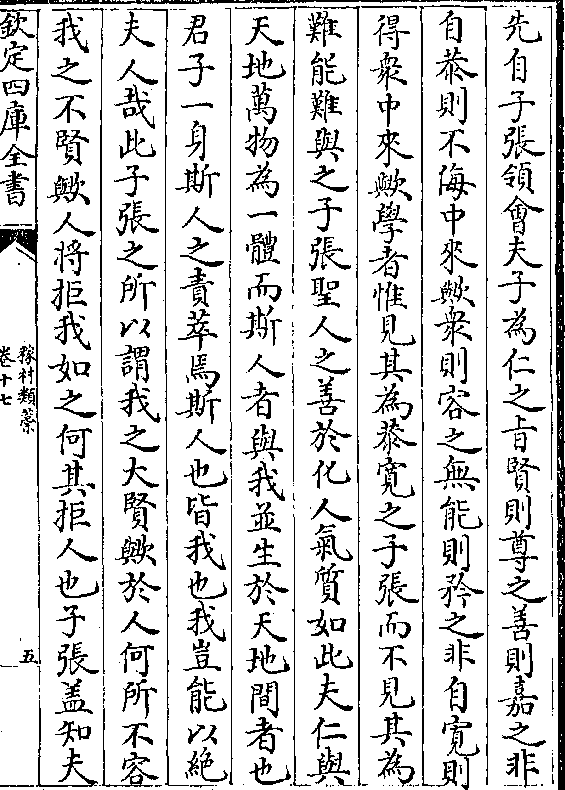 先自子張領會夫子為仁之㫖賢則尊之善則嘉之非
自恭則不侮中來歟衆則容之無能則矜之非自寛則
得衆中來歟學者惟見其為恭寛之子張而不見其為
難能難與之子張聖人之善於化人氣質如此夫仁與
天地萬物為一體而斯人者與我並生於天地間者也
君子一身斯人之責萃焉斯人也皆我也我豈能以絶
夫人哉此子張之所以謂我之大賢歟於人何所不容
我之不賢歟人将拒我如之何其拒人也子張盖知夫
欽定四庫全書
稼村類藁
卷十七
五